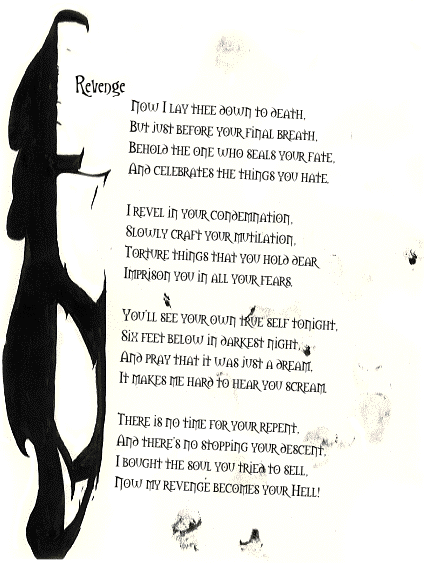 Revenge
Now I lay thee down to death,
But just before your final breath,
Behold the one who seals your fate,
And celebrates the things you hate.
I revel in your condemnation,
Slowly craft your mutilation,
Torture things that you hold dear
Imprison you in all your fears.
You'll see your own true self tonight,
Six feet below in darkest night,
And pray that it was just a dream.
It makes me hard to hear you scream.
There is no time for your repent,
And there's no stopping your descent,
I bought the soul you tried to sell,
Now my revenge becomes your Hell!